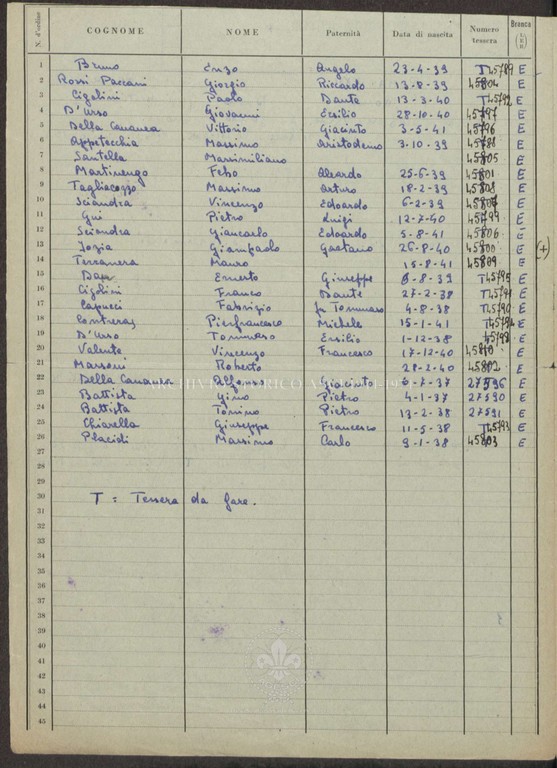 N. d'ordine COGNOME NOME Paternità Data di nascita Numero tessera Branca (L E R)
1 Bruno Enzo Angelo 23-4-39 T45789 E
2 Rossi Paccani Giorgio Riccardo 13-8-39 45804 E
3 Cigolini Paolo Dante 13-3-40 T45792 E
4 D'Urso Giovanni Ersilio 28-10-40 45797 E
5 Della Cananea Vittorio Giacinto 3-5-41 45796 E
6 Appetecchia Massimo Aristodemo 3-10-39 45788 E
7 Santella Massimiliano 45805 E
8 Martinengo Febo Aleardo 25-6-39 45801 E
9 Tagliacozzo Massimo Arturo 18-2-39 45808 E
10 Sciandra Vincenzo Edoardo 6-2-39 45807 E
11 Gui Pietro Luigi 12-7-40 45799 E
12 Sciandra Giancarlo Edoardo 5-8-41 45806 E
13 Jozia Giampaolo Gaetano 26-8-40 45800 E (+)
14 Terranera Mauro 15-8-41 45809 E
15 Ernesto Giuseppe 8-8-39 T45795 E
16 Cigolini Franco Dante 27-2-38 T45791 E
17 Capucci Fabrizio fu Tommaso 4-8-38 T45790 E
18 Contreras Pierfrancesco Michele 15-1-41 E
19 D'Urso Tommaso Ersilio 1-12-38 E
20 Valente Vincenzo Francesco 17-12-40 E
21 Marsoni Roberto 28-2-40 45802 E
22 Della Cananea Alfonso Giacinto 6-7-37 27596 E
23 Battista Gino Pietro 4-1-37 27590 E
24 Battista Tonino Pietro 13-2-38 27591 E
25 Chiarella Giuseppe Francesco 11-5-38 T45793 E
26 Placidi Massimo Carlo 9-1-38 45803 E
27
28
29
30 T = Tessera da fare.
31
32
33
34
35
36
37
38
39
40
41
42
43
44
45